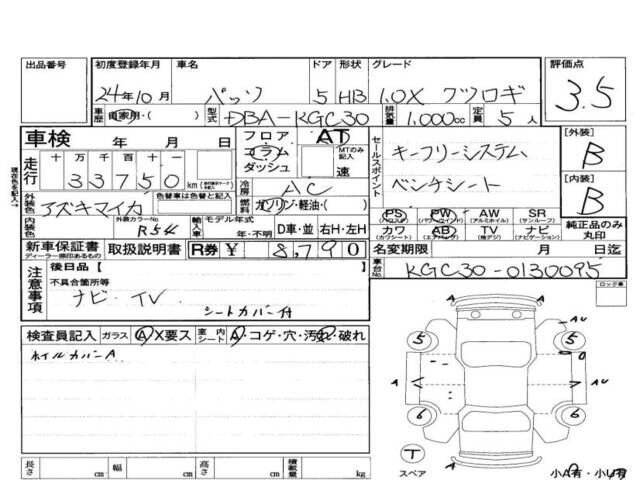 出品番号 初度登録年月 車名 ドア 形状 グレード 評価点
24年10月 パッソ 5 HB 1.0X クツロギ 3.5
車歴 自家用・( ) 型式 DBA-KGC30 排気量 1,000cc 定員 5人
車検 年 月 日 フロア AT
コラム MTのみ記入
ダッシュ 速
走行 十万千百十一
33750 km
冷房 AC
燃料 ガソリン・軽油・( )
セールスポイント
キーフリーシステム
ベンチシート
[外装] B
[内装] B
外装色 アズキマイカ 色替車は色替と記入
内装色 外装カラーNo. R54 輸入車 モデル年式 年・不明 D車・並 右H・左H
PS (パワステ) PW (パワーウインド) AW (アルミホイル) SR (サンルーフ)
カワ (カワシート) AB (エアバック) TV (地デジ) ナビ (ナビゲーション)
純正品のみ丸印
新車保証書 ディーラー捺印あるもの 取扱説明書 R券 ¥ 8,790
名変期限 月 日迄
車台No. KGC30-0130095
現在色を記入→
注意事項
後日品 [ ]
不具合箇所等
ナビ・TV
シートカバー付
ロック車
検査員記入 ガラス A・X要ス 室内シート A・コゲ・穴・汚れ・破れ
ホイルカバーA
A
AU
5 5
A AU
6 6
T
スペア
A
小A有・小U有
長さ cm 幅 cm 高さ cm 積載量 kg